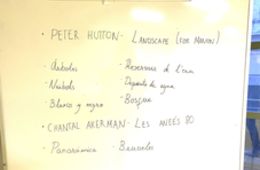 · PETER HUTTON - LANDSCAPE (FOR MANON)
- Árboles
- Nubols
- Blanco y negro
- Reserva de l'
- Depósito de agua
- Bosque
· CHANTAL AKERMAN - LES ANÉES 80
- Panorámica
- Bruselas